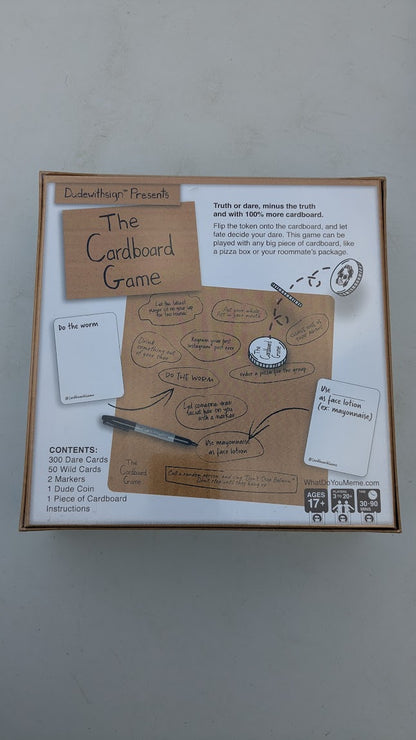 Dudewithsign™ Presents
The
Cardboard
Game
Truth or dare, minus the truth
and with 100% more cardboard.
Flip the token onto the cardboard, and let
fate decide your dare. This game can be
played with any big piece of cardboard, like
a pizza box or your roommate's package.
Do the worm
Let the tallest
player
Put your whole
fist in your mouth
Drink
something out
of your shoe
Regram your first
Instagram post ever
The
Cardboard
Game
DO THE WORM
Order a pizza for the group
Let someone draw
facial hair on you
with a marker
Use mayonnaise
as face lotion
Use
as face lotion
(ex: mayonnaise)
Call a random person and sing "Don't Stop Believin'"
Don't stop until they hang up
The
Cardboard
Game
CONTENTS:
300 Dare Cards
50 Wild Cards
2 Markers
1 Dude Coin
1 Piece of Cardboard
Instructions
WhatDoYouMeme.com
AGES
17+
PLAYERS
3 TO 20+
TIME
30-90
MINS